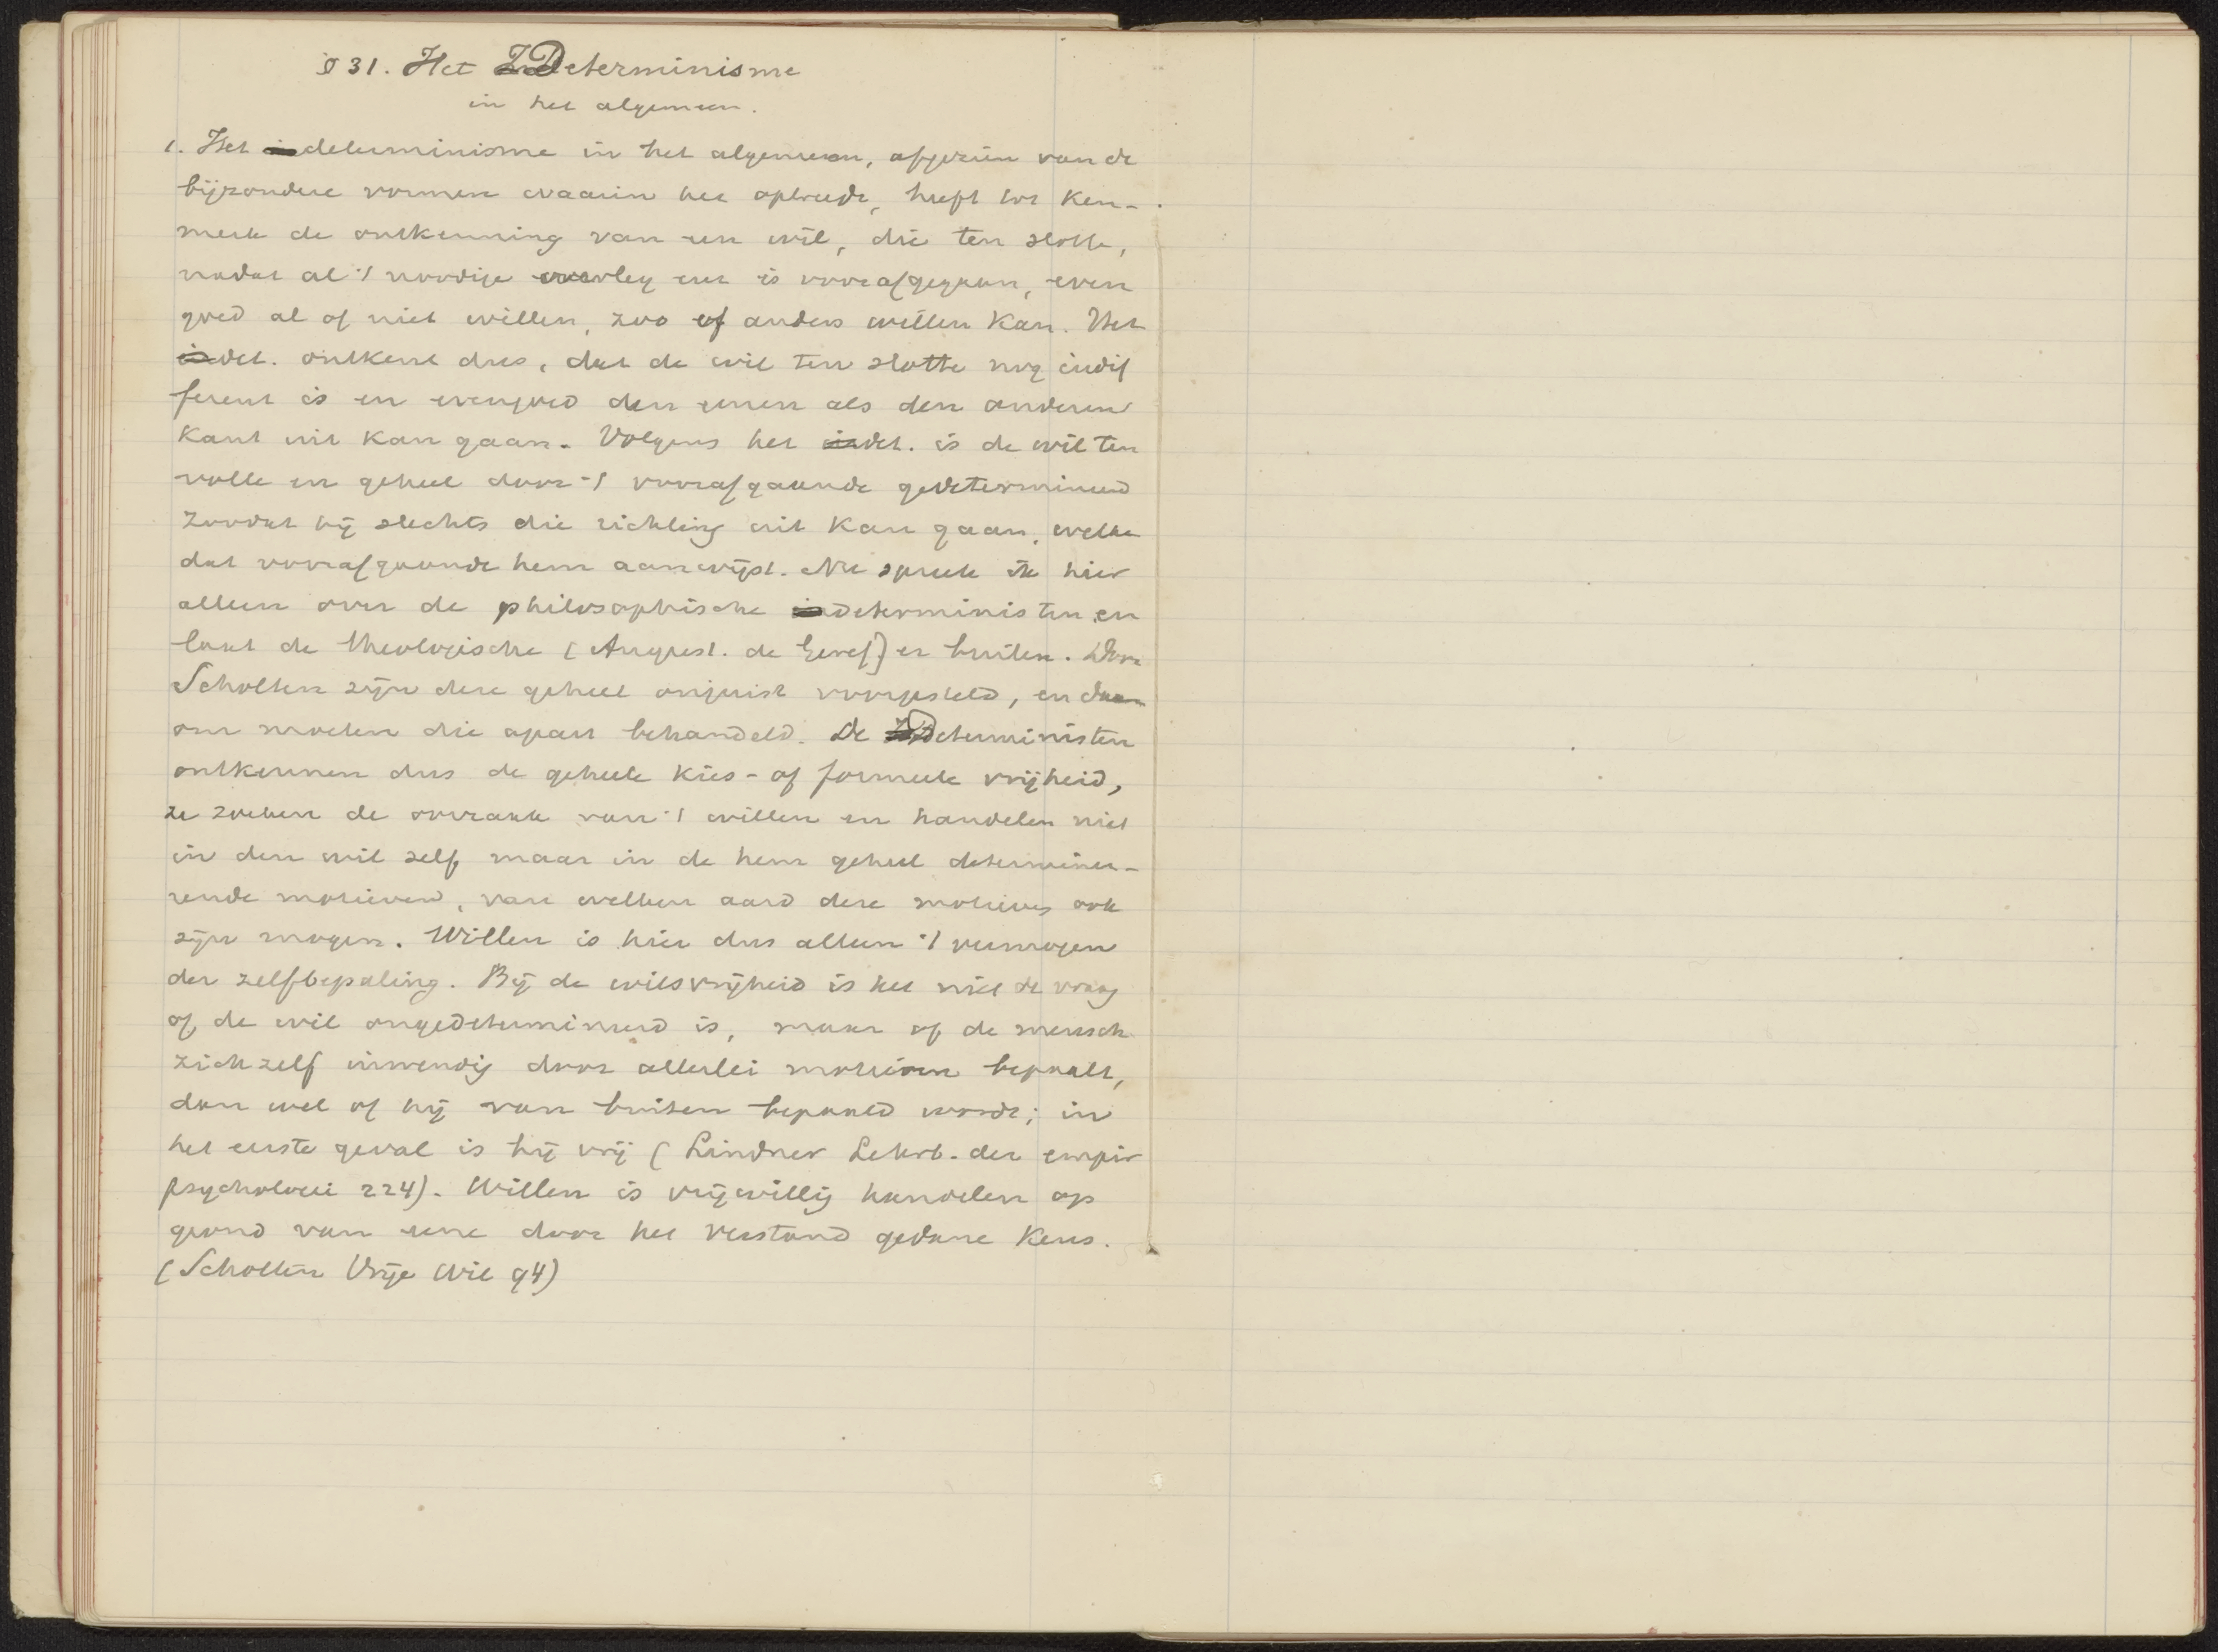 § 31. Het Determinisme
in het algemeen.
1. Het determinisme in het algemeen, afgezien van de
bijzondere vormen waarin het optreedt, heeft tot ken-
merk de ontkenning van een wil, die ten slotte,
nadat al 't noodige overleg enz is voorafgegaan, even
goed al of niet willen, zoo of anders willen kan. Het
det. ontkent dus, dat de wil ten slotte nog indif
ferent is en evengoed den eenen als den anderen
kant uit kan gaan. Volgens het det. is de wil ten
volle en geheel door 't voorafgaande gedetermineerd
zoodat hij slechts die richting uit kan gaan, welke
dat voorafgaande hem aanwijst. Nu spreek ik hier
alleen over de philosophische deterministen en
laat de theologische (August. de Geref) er buiten. Door
Scholten zijn deze geheel onjuist voorgesteld, en daar
om moeten die apart behandeld. De Deterministen
ontkennen dus de geheele kies- of formeele vrijheid,
ze zoeken de oorzaak van 't willen en handelen niet
in den wil zelf, maar in de hem geheel determinee-
rende motieven, van welken aard deze motieven ook
zijn mogen. Willen is hier dus alleen 't vermogen
der zelfbepaling. Bij de wilsvrijheid is het niet de vraag
of de wil ongedetermineerd is, maar of de mensch
zichzelf inwendig door allerlei motieven bepaalt,
dan wel of hij van buiten bepaald wordt; in
het eerste geval is hij vrij (Lindner Lehrb. der empir
psychologie 224). Willen is vrijwillig handelen op
grond van eene door het verstand gedane keus.
(Scholten Vrije Wil 94)